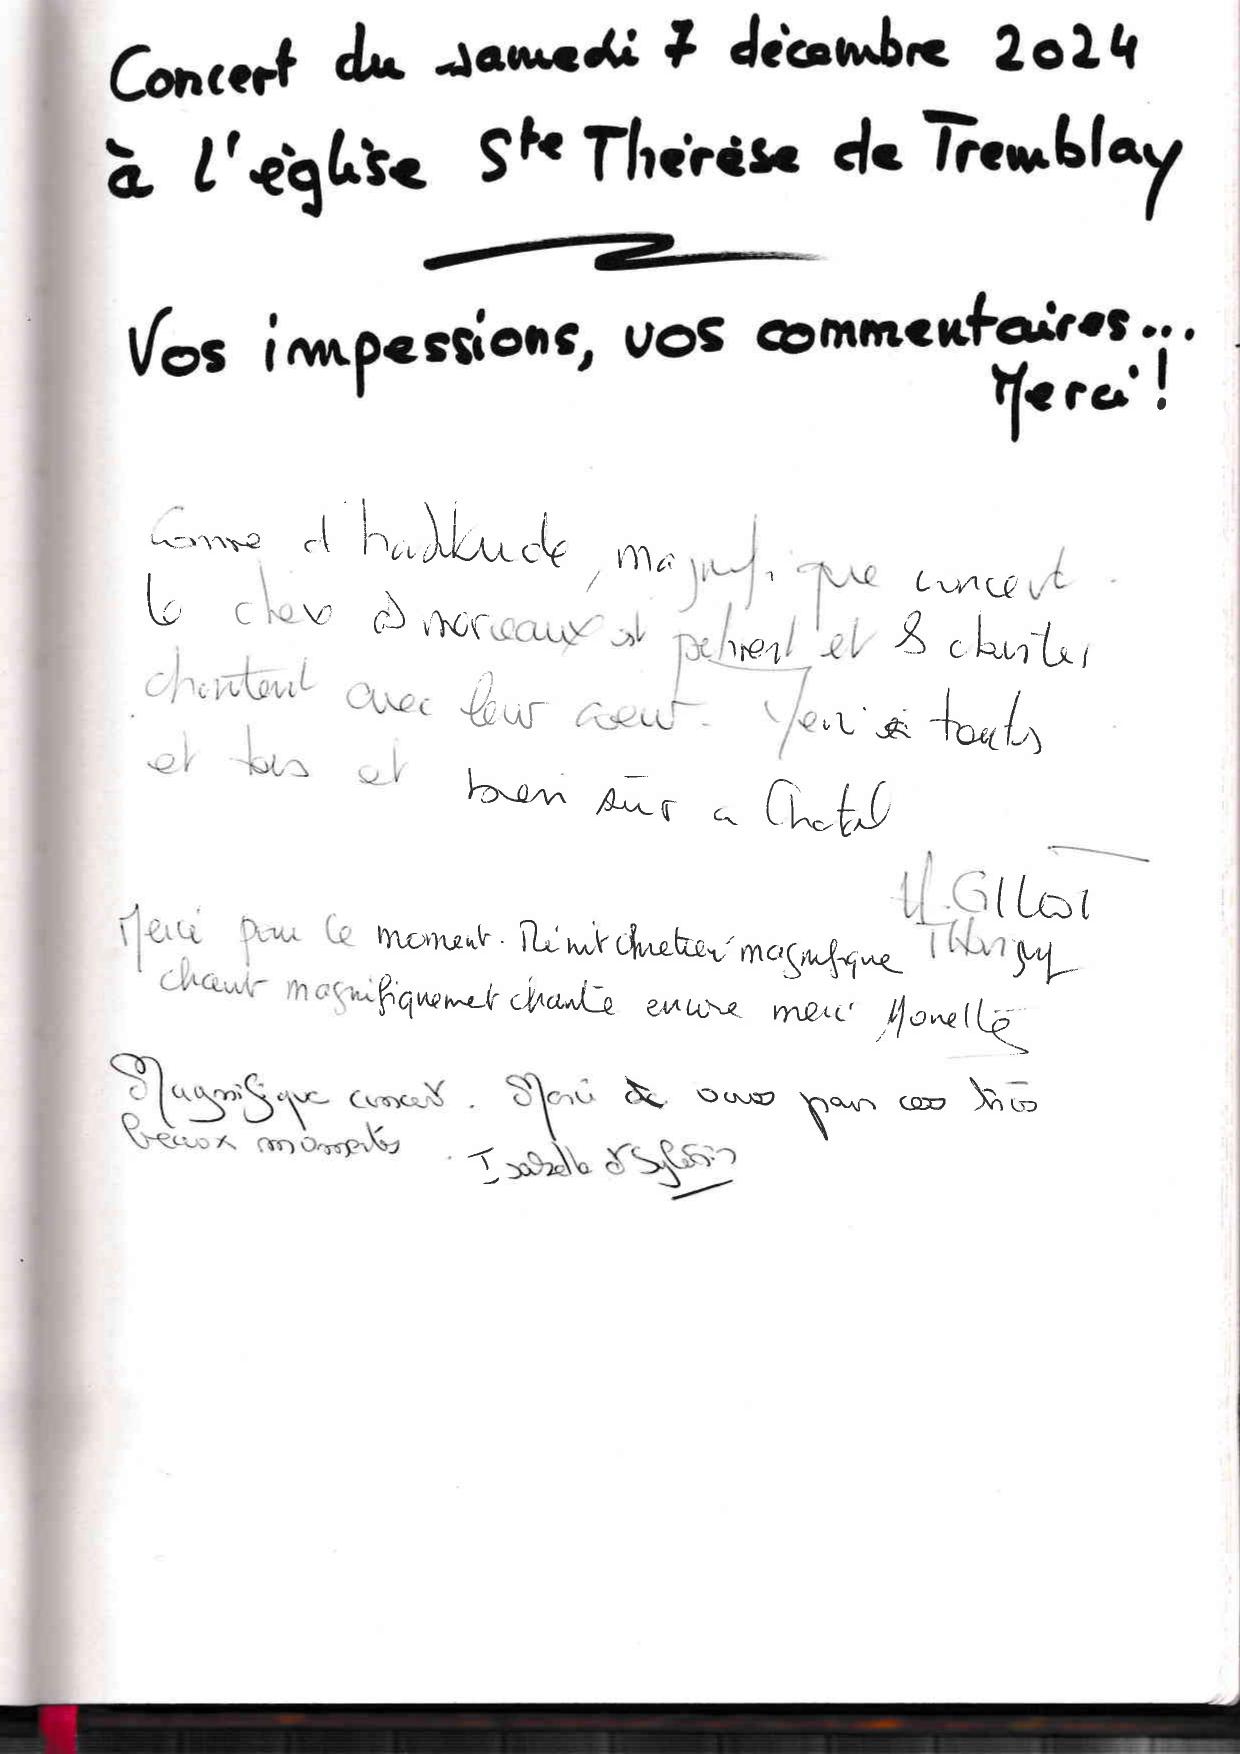 Concert du samedi 7 décembre 2024
à l'église Ste Thérèse de Tremblay
Vos impessions, vos commentaires...
Merci!
Comme d'habitude, magnifique concert.
le choix d morceaux est et
chantent avec leur coeur. Merci à toutes
et tous et bien sûr a Chatal
M. GILLOT
Merci pour ce moment. magnifique
chœur magnifiquement chanté encore merci
Magnifique concert. Merci de vous pour ces très
beaux moments Isabelle &